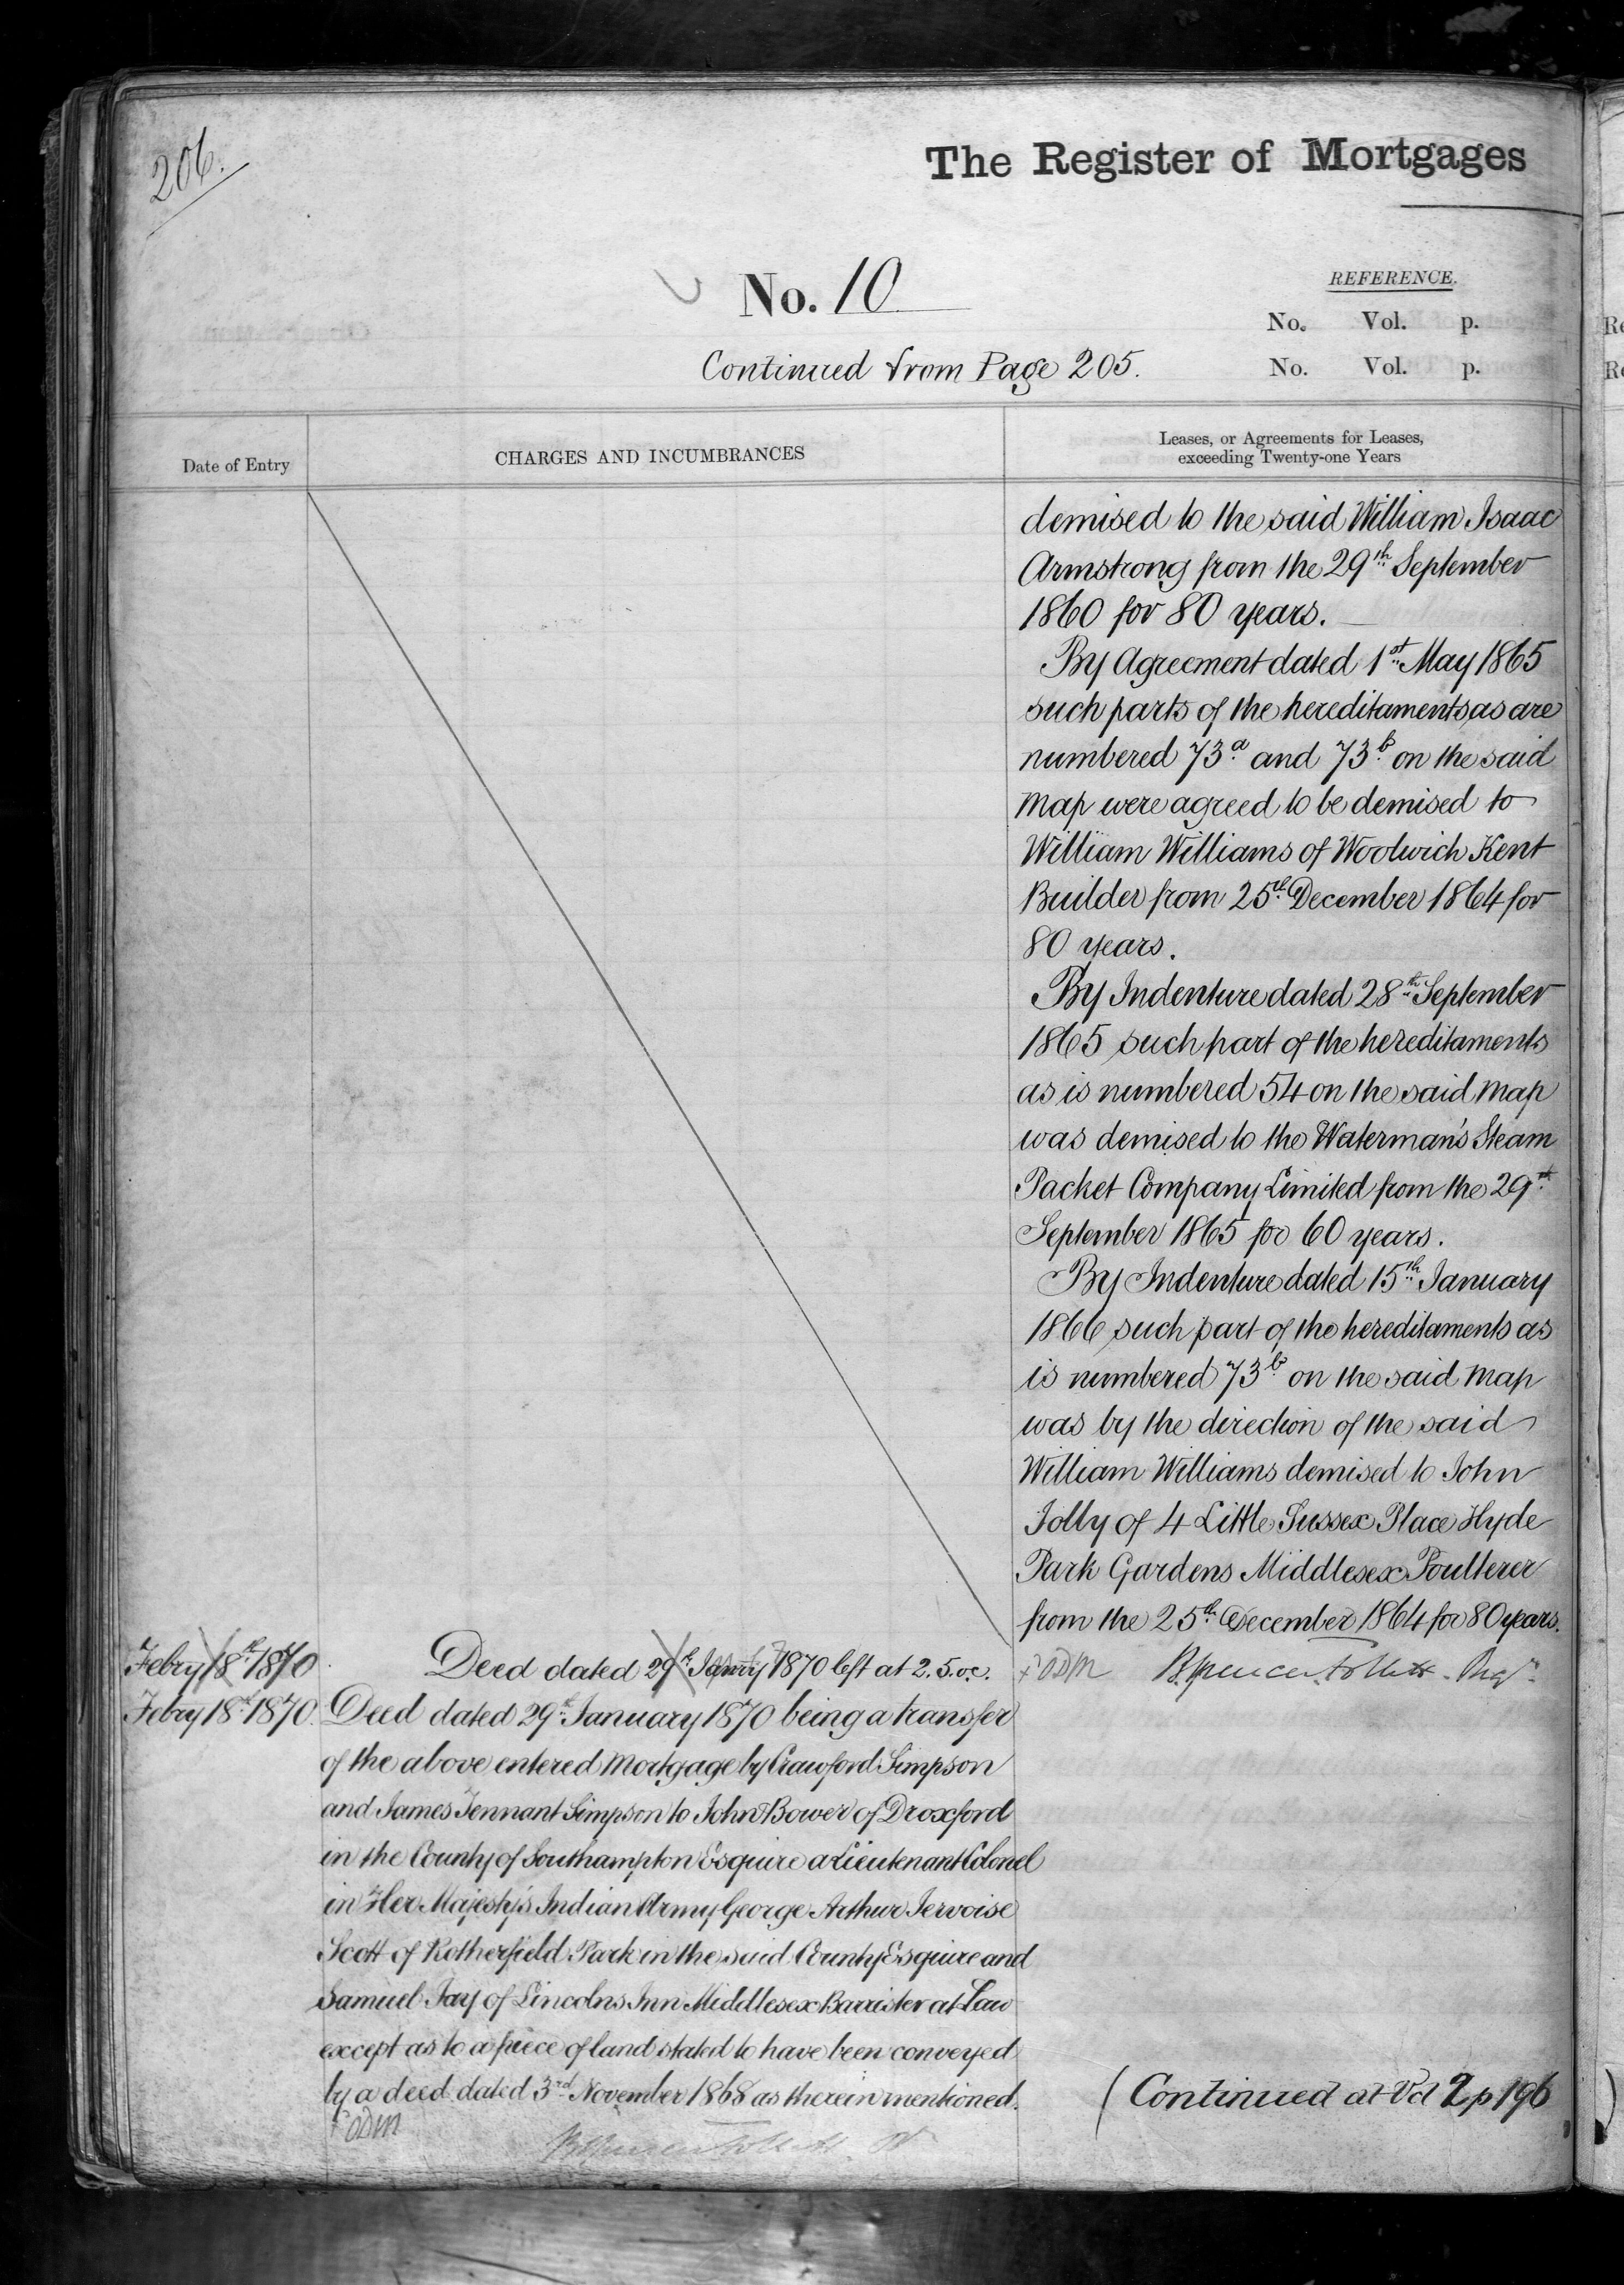 206.
The Register of Mortgages
No. 10
REFERENCE.
No. Vol. p.
No. Vol. p.
Continued from Page 205.
Date of Entry
CHARGES AND INCUMBRANCES
Leases, or Agreements for Leases,
exceeding Twenty-one Years
demised to the said William Isaac
Armstrong from the 29th September
1860 for 80 years.
By Agreement dated 1st May 1865
such parts of the hereditaments as are
numbered 73a and 73b on the said
Map were agreed to be demised to
William Williams of Woolwich Kent
Builder from 25th December 1864 for
80 years.
By Indenture dated 28th September
1865 such part of the hereditaments
as is numbered 54 on the said Map
was demised to the Waterman's Steam
Packet Company Limited from the 29th
September 1865 for 60 years.
By Indenture dated 15th January
1866 such part of the hereditaments as
is numbered 73b on the said Map
was by the direction of the said
William Williams demised to John
Jolly of 4 Little Sussex Place Hyde
Park Gardens Middlesex Poulterer
from the 25th December 1864 for 80 years.
Febry 18th 1870
Deed dated 29th Janry 1870 left at 2.5. oc.
Febry 18th 1870.
Deed dated 29th January 1870 being a transfer
of the above entered Mortgage by Crawford Simpson
and James Tennant Simpson to John Bower of Droxford
in the County of Southampton Esquire a Lieutenant Colonel
in Her Majesty's Indian Army George Arthur Jervoise
Scott of Rotherfield Park in the said County Esquire and
Samuel Jay of Lincolns Inn Middlesex Barrister at Law
except as to a piece of land stated to have been conveyed
by a deed dated 3rd November 1868 as therein mentioned.
(Continued at Vol 2 p 196